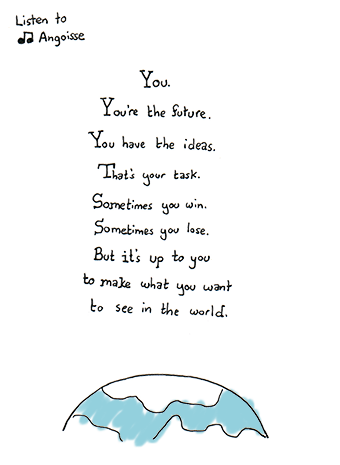 Listen to
♫ Angoisse
You.
You're the future.
You have the ideas.
That's your task.
Sometimes you win.
Sometimes you lose.
But it's up to you
to make what you want
to see in the world.